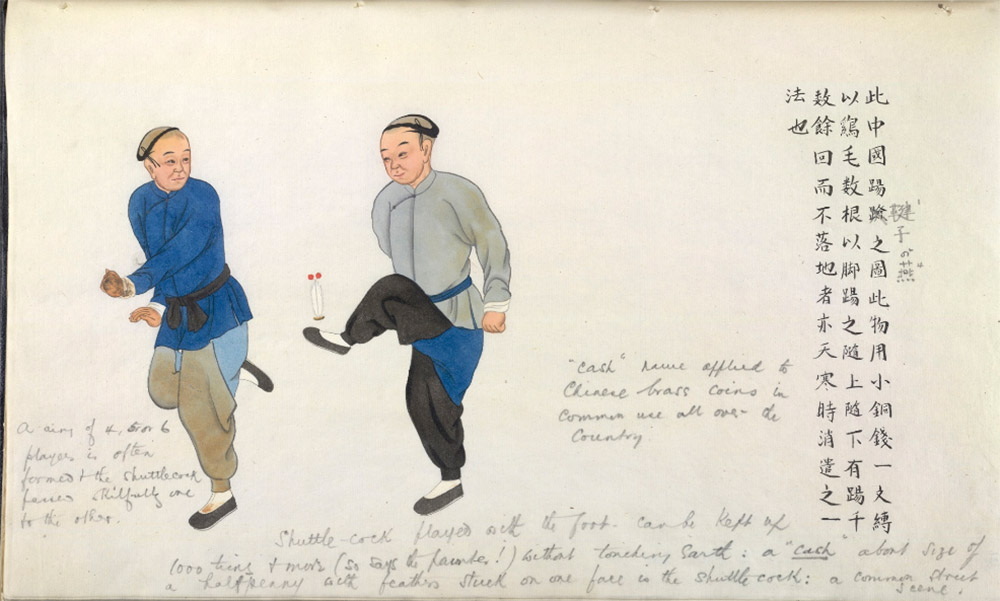 此中國踢之圖此物用小銅錢一文縛
以鷄毛数根以脚踢之隨上隨下有踢千
数餘回而不落地者亦天寒時消遣之一
法也
子 "燕"
"Cash" name applied to
Chinese brass coins in
common use all over the
Country
A ring of 4, 5 or 6
players is often
formed & the shuttlecock
passed skilfully one
to the other.
Shuttle-cock played with the foot. can be kept up
1000 times & more (so says the painter!) without touching Earth: a "Cash" about size of
a halfpenny with feathers stuck on one face is the shuttle cock: a common street
scene.